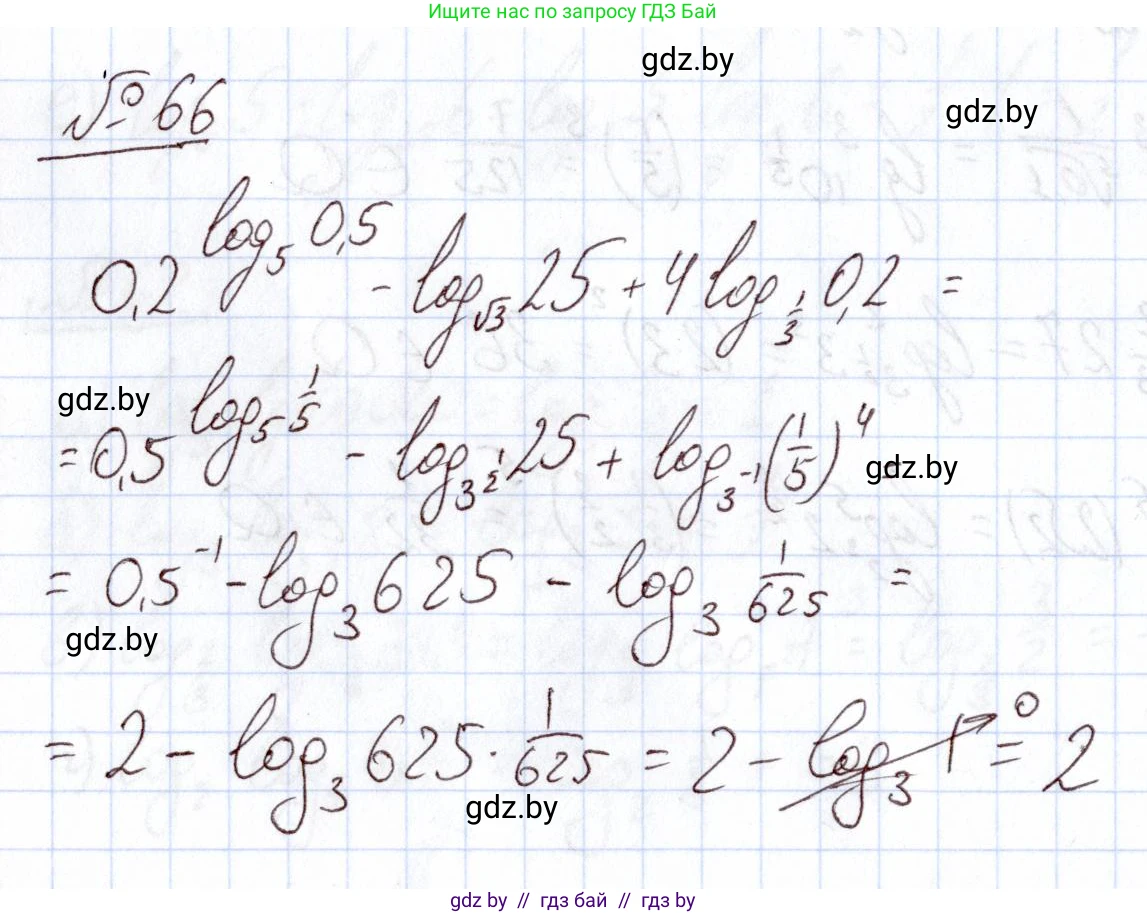 Ищите нас по запросу ГДЗ Бай
gdz.by
gdz.by
№ 66
0,2^{log_5 0,5} - log_{√3} 25 + 4 log_{1/3} 0,2 =
gdz.by
= 0,5^{log_5 1/5} - log_{3^{1/2}} 25 + log_{3^{-1}} (1/5)^4 =
gdz.by
= 0,5^{-1} - log_3 625 - log_3 1/625 =
gdz.by
= 2 - log_3 625 · 1/625 = 2 - log_3 1 → 0 = 2
gdz.by
gdz by // гдз бай // гдз by